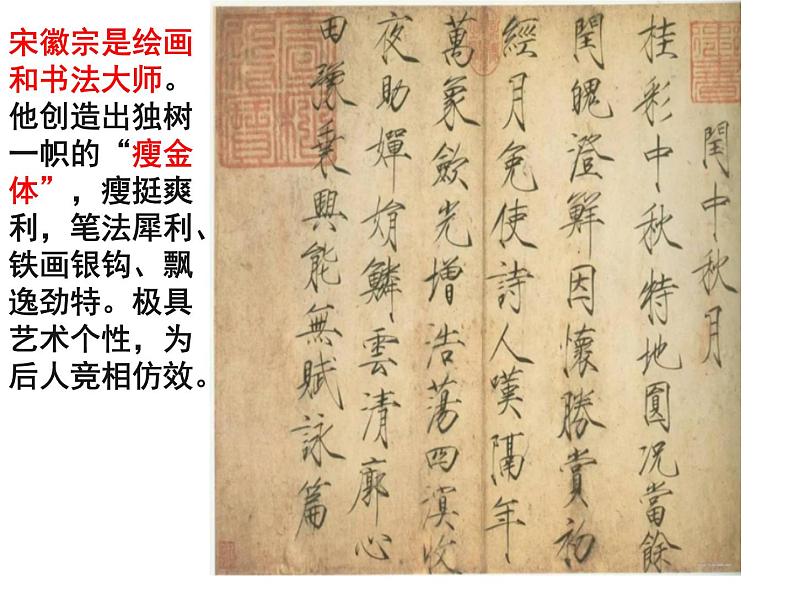 宋徽宗是绘画
和书法大师。
他创造出独树
一帜的“瘦金
体”，瘦挺爽
利，笔法犀利、
铁画银钩、飘
逸劲特。极具
艺术个性，为
后人竞相仿效。
閏中秋月
桂彩中秋特地圓況當餘
閏魄澄鮮因懷勝賞初
經月免使詩人嘆隔年
萬象歛光增浩蕩四溟收
夜助嬋娟鱗雲清廓心
田豫乘興能無賦詠篇